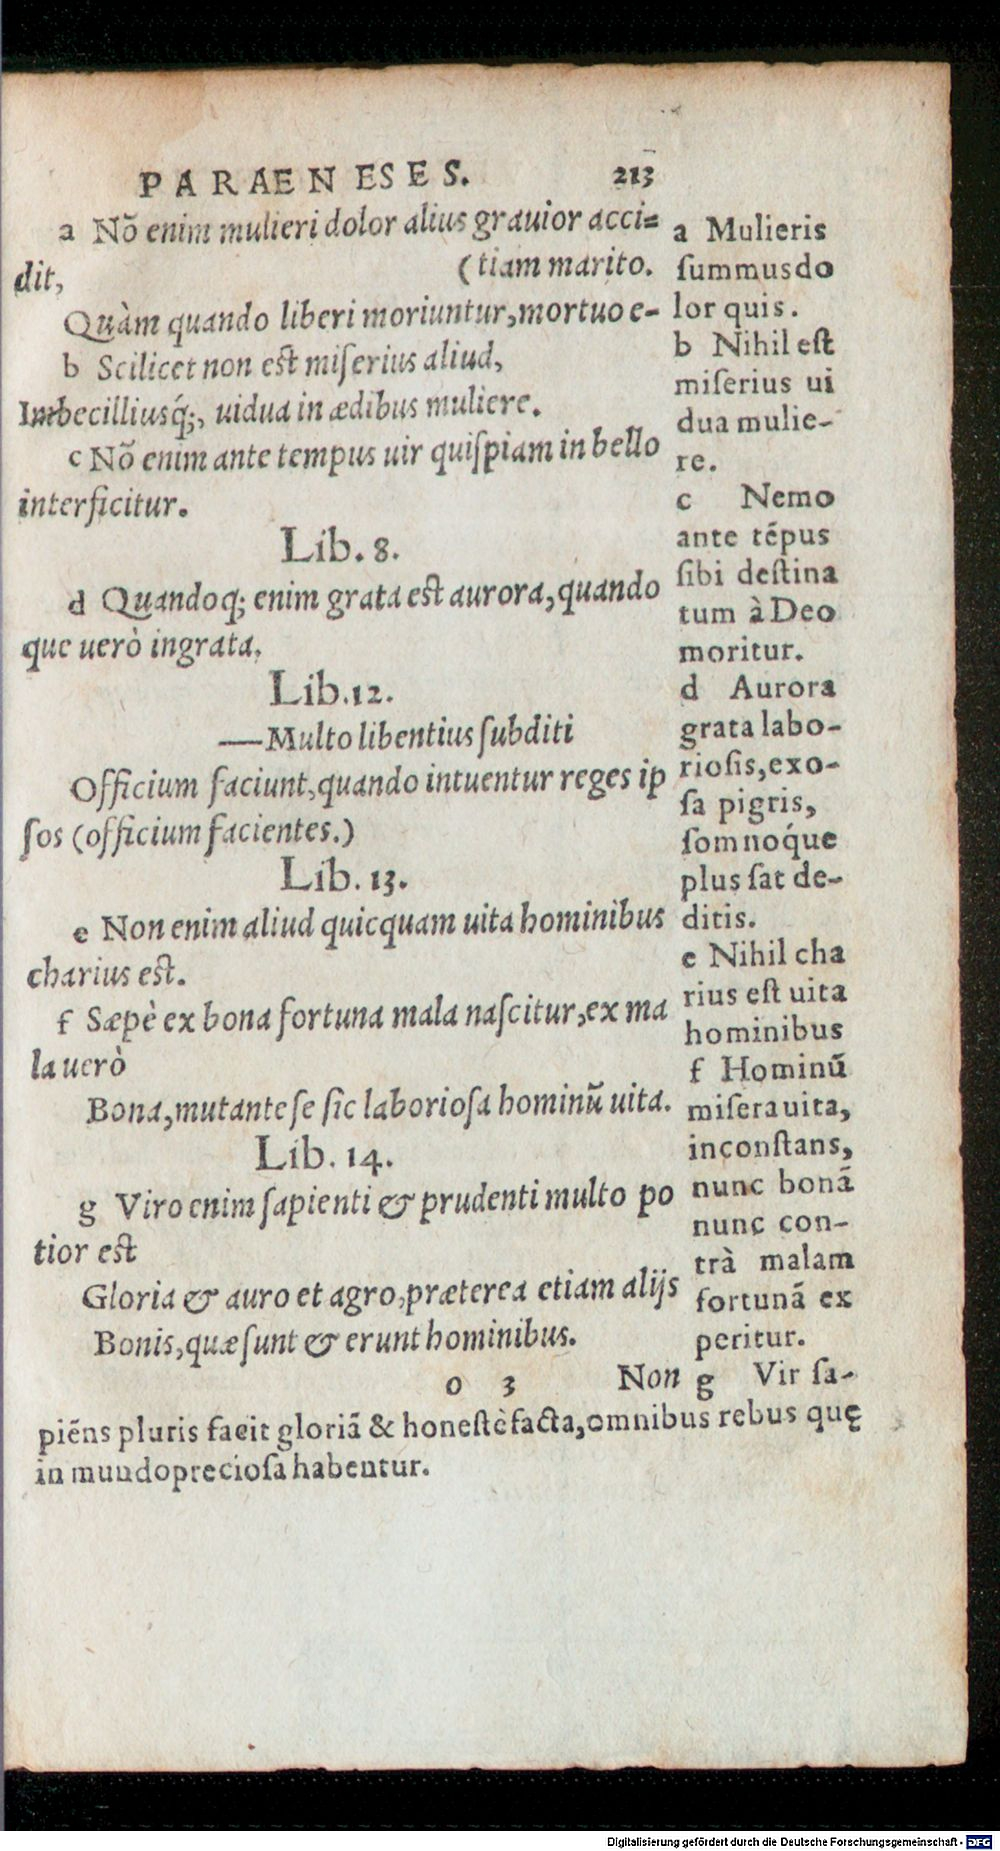 PARAENESES. 213
a Nõ enim mulieri dolor alius grauior acci=
dit, (tiam marito.
Quàm quando liberi moriuntur, mortuo e-
b Scilicet non est miſerius aliud,
Imbecilliusq́;, uidua in ædibus muliere.
c Nõ enim ante tempus uir quiſpiam in bello
interficitur.
Lib. 8.
d Quandoq; enim grata est aurora, quando
que uerò ingrata.
Lib. 12.
—Multo libentius ſubditi
Officium faciunt, quando intuentur reges ip
ſos (officium facientes.)
Lib. 13.
e Non enim aliud quicquam uita hominibus
charius est.
f Sæpè ex bona fortuna mala naſcitur, ex ma
la uerò
Bona, mutante ſe ſic laborioſa hominũ uita.
Lib. 14.
g Viro enim ſapienti & prudenti multo po
tior est
Gloria & auro et agro, præterea etiam alijs
Bonis, quæ ſunt & erunt hominibus.
o 3 Non
a Mulieris
ſummus do
lor quis.
b Nihil eſt
miſerius ui
dua mulie-
re.
c Nemo
ante tẽpus
ſibi deſtina
tum à Deo
moritur.
d Aurora
grata labo-
rioſis, exo-
ſa pigris,
ſomnoq́ue
plus ſat de-
ditis.
e Nihil cha
rius eſt uita
hominibus
f Hominũ
miſera uita,
inconſtans,
nunc bonã
nunc con-
trà malam
fortunã ex
peritur.
g Vir ſa-
piẽns pluris facit gloriã & honeſtè facta, omnibus rebus quę
in mundo precioſa habentur.
Digitalisierung gefördert durch die Deutsche Forschungsgemeinschaft - DFG